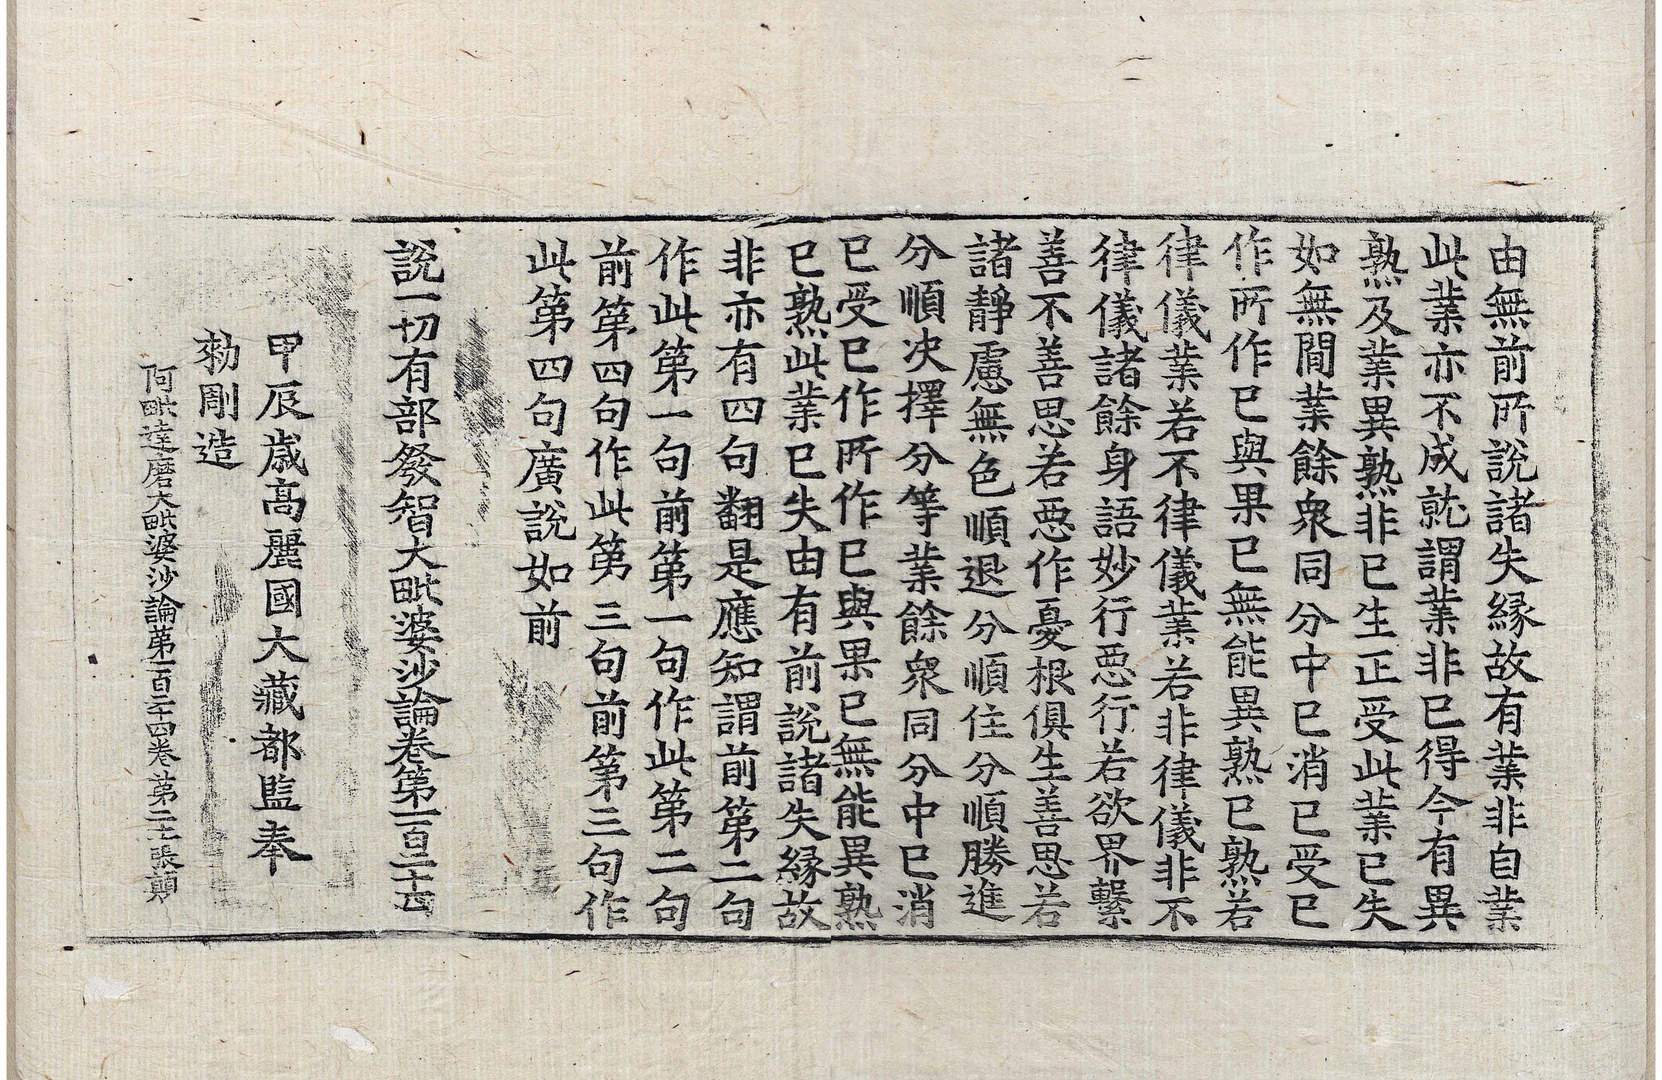 由無前所說諸失緣故有業非自業
此業亦不成就謂業非已得今有異
熟及業異熟非已生正受此業已失
如無間業餘衆同分中已消已受已
作所作已與果已無能異熟已熟若
律儀業若不律儀業若非律儀非不
律儀諸餘身語妙行惡行若欲界繫
善不善思若惡作憂根俱生善思若
諸靜慮無色順退分順住分順勝進
分順决擇分等業餘衆同分中已消
已受已作所作已與果已無能異熟
已熟此業已失由有前說諸失緣故
非亦有四句翻是應知謂前第二句
作此第一句前第一句作此第二句
前第四句作此第三句前第三句作
此第四句廣說如前
說一切有部發智大毗婆沙論卷第一百二十四
甲辰歲高麗國大藏都監奉
勑彫造
阿毗達磨大毗婆沙論第一百二十四卷 第二十張 顚